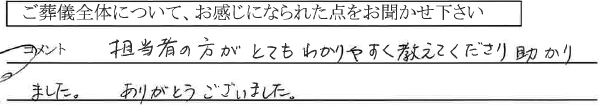 ご葬儀全体について、お感じになられた点をお聞かせ下さい
コメント 担当者の方がとてもわかりやすく教えてくださり助かり
ました。 ありがとうございました。